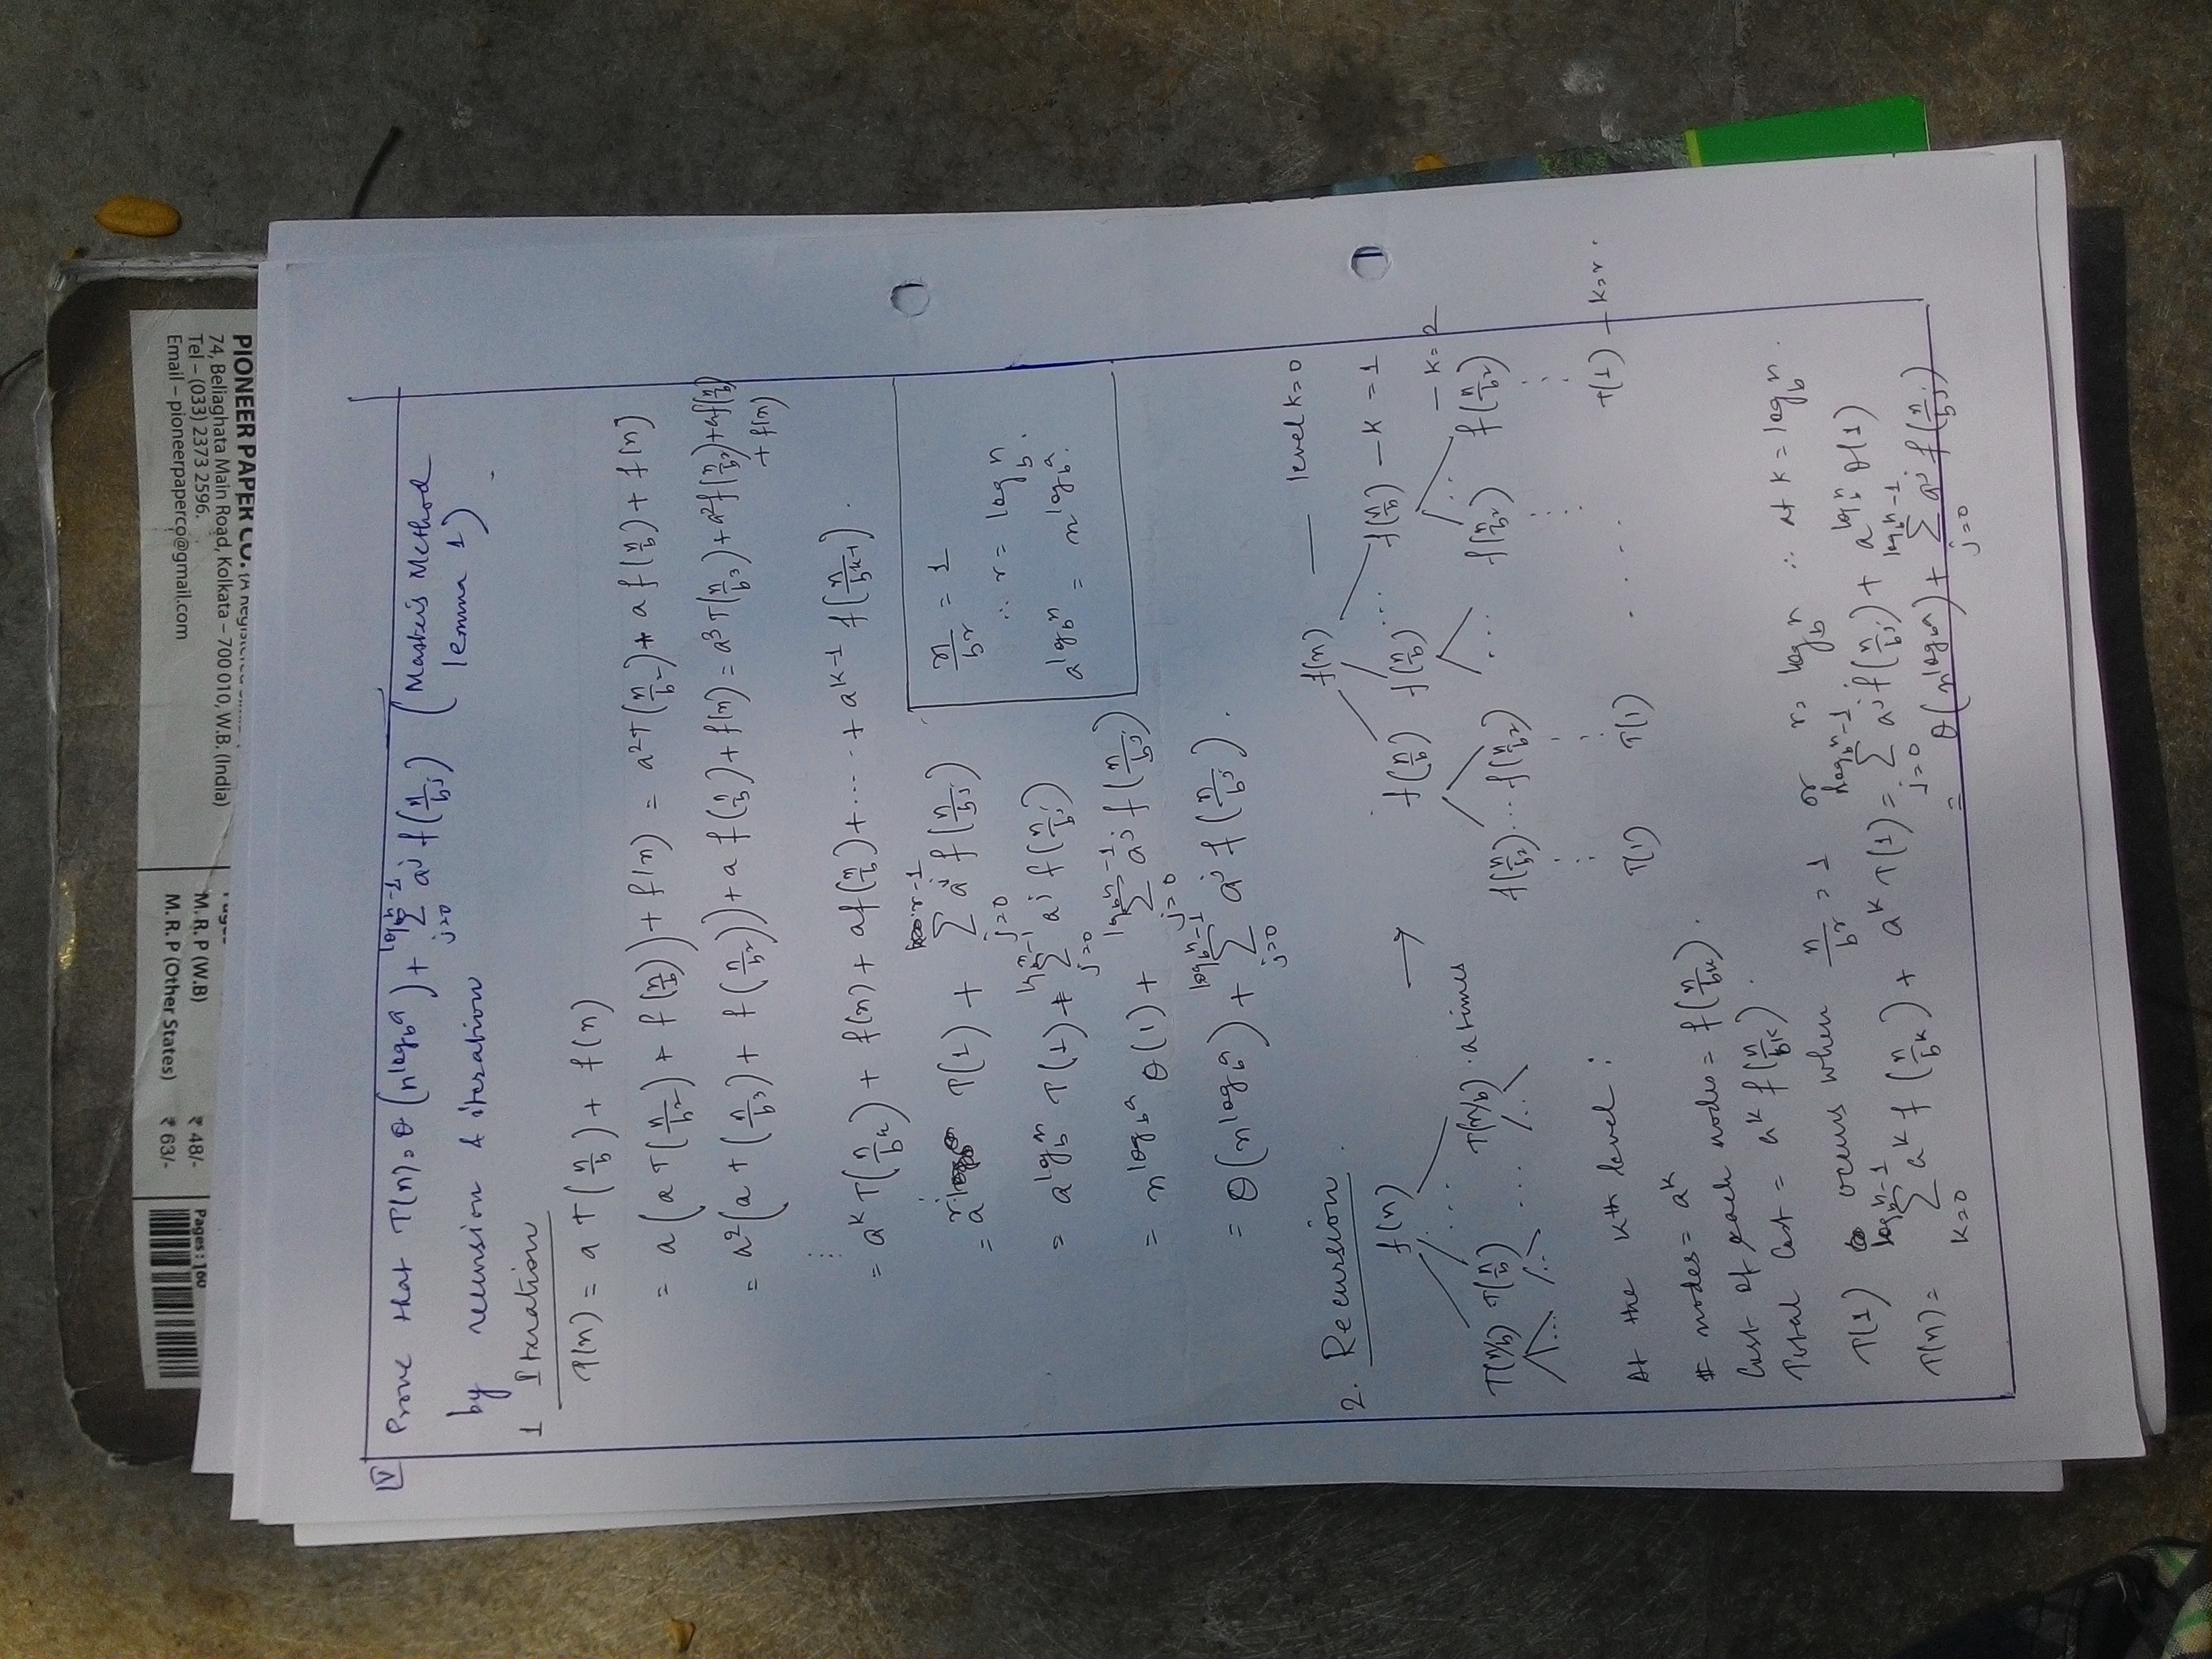 Pages: 160
M. R. P (W.B) ₹ 48/-
M. R. P (Other States) ₹ 63/-
PIONEER PAPER CO.
74, Beliaghata Main Road, Kolkata – 700 010, W.B. (India)
Tel – (033) 2373 2596.
Email – pioneerpaperco@gmail.com
IV Prove that T(n) = θ(n^{log_b a}) + Σ_{j=0}^{log_b n - 1} a^j f(n/b^j) (Master's Method lemma 1)
by recursion & iteration
1 Iteration
T(n) = a T(n/b) + f(n)
= a(a T(n/b²) + f(n/b)) + f(n) = a² T(n/b²) + a f(n/b) + f(n)
= a²(a T(n/b³) + f(n/b²)) + a f(n/b) + f(n) = a³ T(n/b³) + a² f(n/b²) + a f(n/b)
+ f(n)
⋮
= a^k T(n/b^k) + f(n) + a f(n/b) + .... + a^{k-1} f(n/b^{k-1}).
= a^r T(1) + Σ_{j=0}^{r-1} a^j f(n/b^j)
= a^{log_b n} T(1) + Σ_{j=0}^{log_b n - 1} a^j f(n/b^j)
= n^{log_b a} θ(1) + Σ_{j=0}^{log_b n - 1} a^j f(n/b^j)
= θ(n^{log_b a}) + Σ_{j=0}^{log_b n - 1} a^j f(n/b^j).
n/b^r = 1
∴ r = log_b n.
a^{log_b n} = n^{log_b a}.
2. Recursion.
f(n)
T(n/b) T(n/b) ... T(n/b) . a times
→
f(n) — level k=0
f(n/b) f(n/b) ... f(n/b) — k = 1
— k = 2
f(n/b²) ... f(n/b²) ... f(n/b²) f(n/b²)
T(1) T(1) .... T(1) — k=r.
At the kth level :
# nodes = a^k
Cost of each nodes = f(n/b^k).
Total Cost = a^k f(n/b^k).
T(1) occurs when n/b^r = 1 or r = log_b n ∴ at k = log_b n.
T(n) = Σ_{k=0}^{log_b n - 1} a^k f(n/b^k) + a^k T(1) = Σ_{j=0}^{log_b n - 1} a^j f(n/b^j) + a^{log_b n} θ(1)
= θ(n^{log_b a}) + Σ_{j=0}^{log_b n - 1} a^j f(n/b^j)